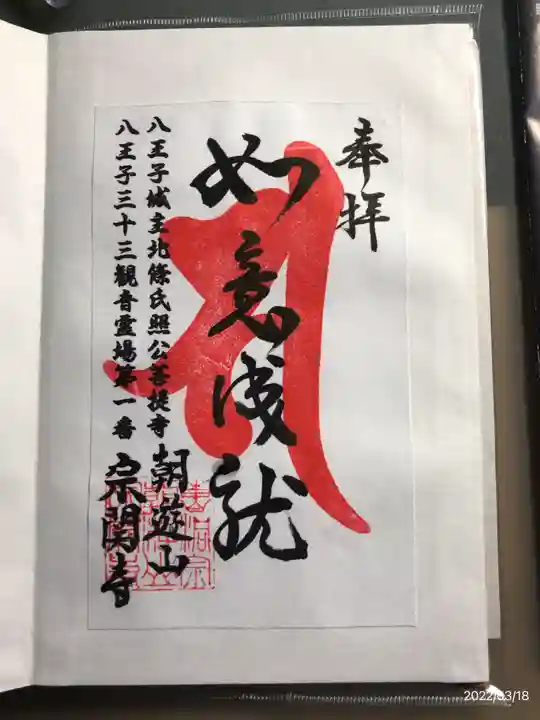 奉拝
如意成就
八王子城主北條氏照公菩提寺
朝遊山
八王子三十三観音霊場第一番
宗関寺
2022/03/18